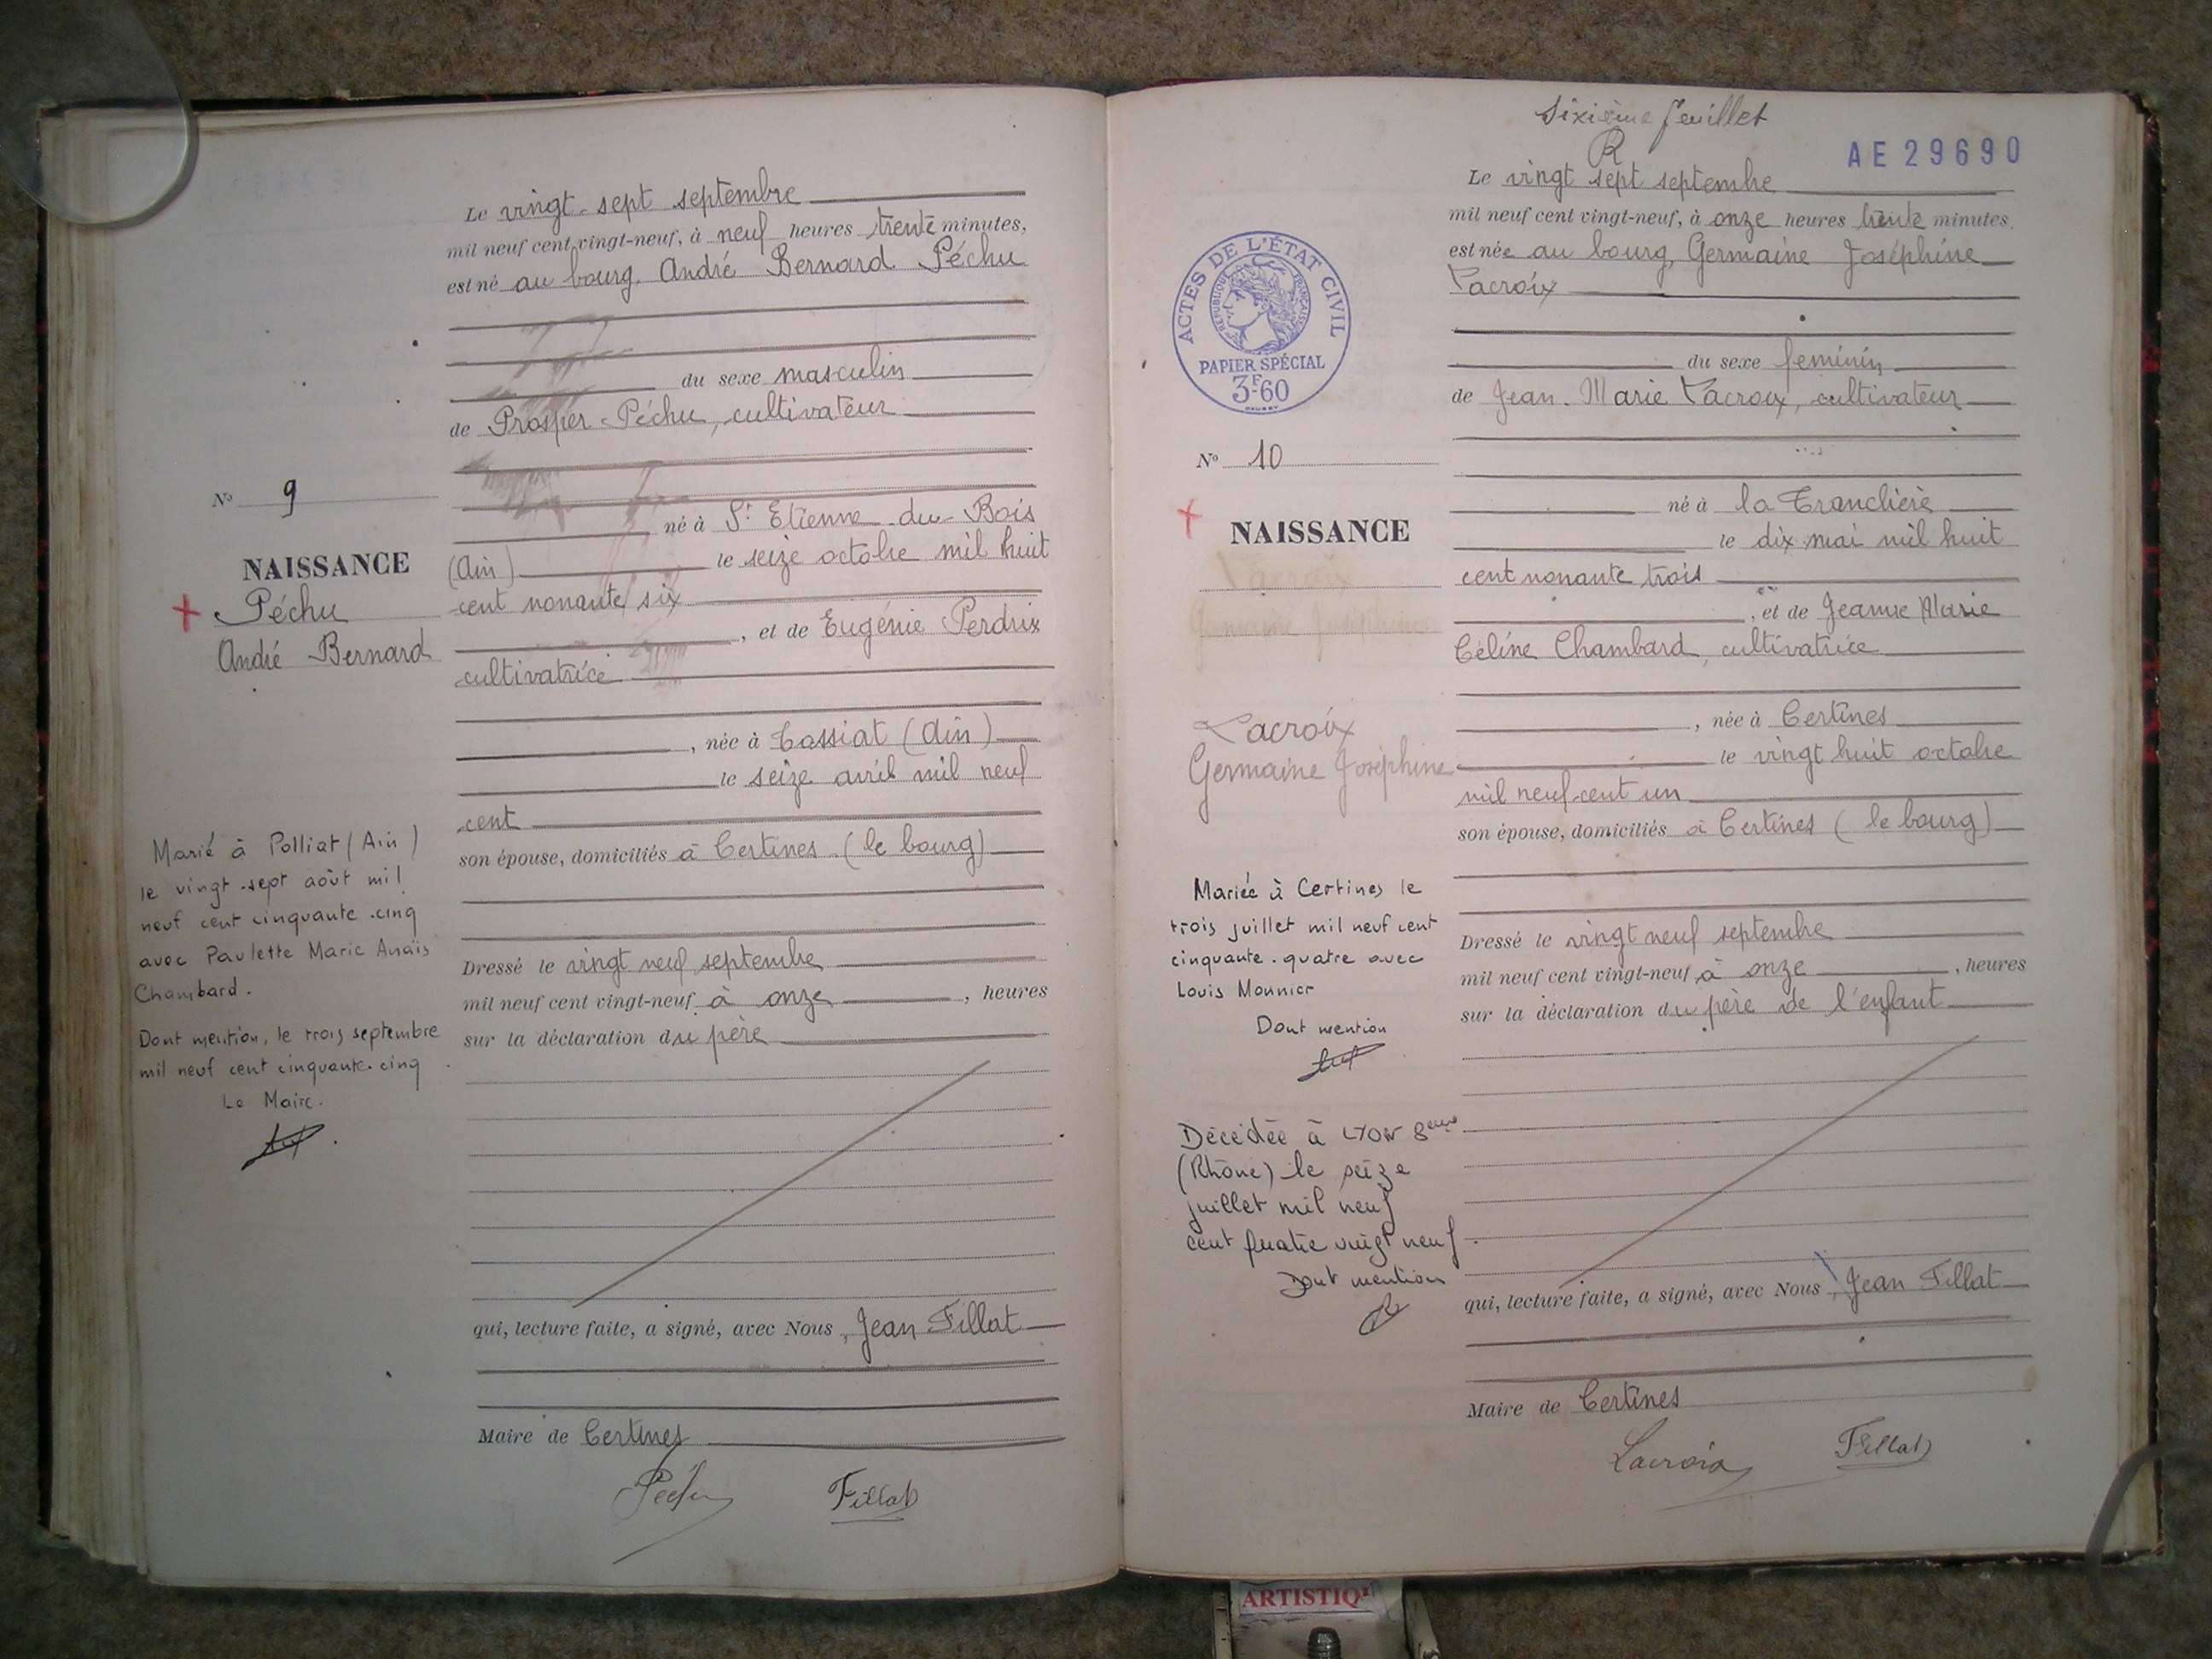 Le vingt-sept septembre
mil neuf cent vingt-neuf, à neuf heures trente minutes,
est né au bourg, André Bernard Péchu
du sexe masculin
de Prosper Péchu, cultivateur
né à St Etienne-du-Bois
(Ain) le seize octobre mil huit
cent nonante six
, et de Eugénie Perdrix
cultivatrice
, née à Tossiat (Ain)
le seize avril mil neuf
cent
son épouse, domiciliés à Certines (le bourg)
Dressé le vingt neuf septembre
mil neuf cent vingt-neuf à onze , heures
sur la déclaration du père
qui, lecture faite, a signé, avec Nous, Jean Fillat
Maire de Certines
Péchu Fillat
No 9
NAISSANCE
Péchu
André Bernard
Marié à Polliat (Ain)
le vingt-sept août mil
neuf cent cinquante-cinq
avec Paulette Marie Anaïs
Chambard.
Dont mention, le trois septembre
mil neuf cent cinquante-cinq
Le Maire.
Sixième feuillet
AE29690
Le vingt sept septembre
mil neuf cent vingt-neuf, à onze heures trente minutes.
est née au bourg, Germaine Joséphine
Lacroix
du sexe feminin
de Jean-Marie Lacroix, cultivateur
né à la Tranclière
le dix mai mil huit
cent nonante trois
, et de Jeanne Marie
Céline Chambard, cultivatrice
, née à Certines
le vingt huit octobre
mil neuf cent un
son épouse, domiciliés à Certines (le bourg)
Dressé le vingt neuf septembre
mil neuf cent vingt-neuf à onze , heures
sur la déclaration du père de l'enfant
qui, lecture faite, a signé, avec Nous, Jean Fillat
Maire de Certines
Lacroix Fillat
ACTES DE L'ÉTAT CIVIL
RÉPUBLIQUE FRANÇAISE
PAPIER SPÉCIAL
3F60
No 10
NAISSANCE
Lacroix
Germaine Joséphine
Lacroix
Germaine Joséphine
Mariée à Certines le
trois juillet mil neuf cent
cinquante-quatre avec
Louis Monnier
Dont mention
Décédée à LYON 8eme
(Rhône) le seize
juillet mil neuf
cent quatre vingt neuf.
Dont mention
ARTISTIQ